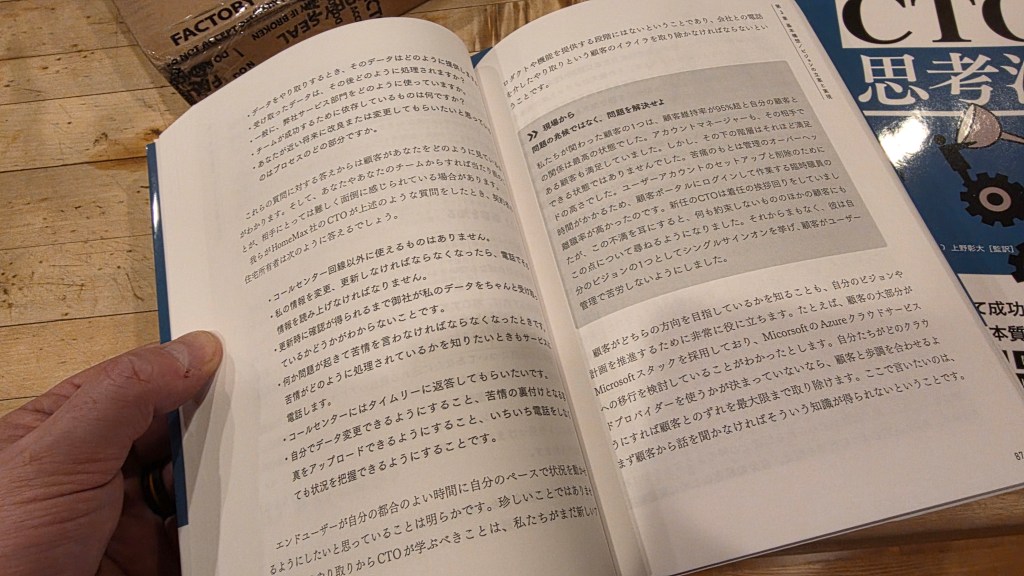 FACTORY
SEAL
IS BROKEN
データをやり取りするとき、そのデータはどのように提供
・受け取ったデータは、その後どのように処理されますか?
・一般に、弊社サービス部門をどのように使っていますか?
・チームが成功するために依存しているものは何ですか?
・あなたが近い将来に改良または変更してもらいたいと思ってい
のはプロセスのどの部分ですか。
これらの質問に対する答えからは顧客があなたをどのように見てい
がわかります。そして、あなたやあなたのチームからすれば当たり前
とが、相手にとっては難しく面倒に感じられている場合があります。
我らがHomeMax社のCTOが上述のような質問をしたとき、
住宅所有者は次のように答えるでしょう。
・コールセンター回線以外に使えるものはありません。
・私の情報を変更、更新しなければならなくなったら、電話で
情報を読み上げなければなりません。
・更新時に確認が得られるまで御社が私のデータをちゃんと受け
ているかどうかがわからないことです。
・何か問題が起きて苦情を言わなければならなくなったときです。
苦情がどのように処理されているかを知りたいときもサービス
電話します。
・コールセンターにはタイムリーに返答してもらいたいです。
・自分でデータ変更できるようにすること、苦情の裏付けとなる
真をアップロードできるようにすること、いちいち電話をし
ても状況を把握できるようにすることです。
エンドユーザーが自分の都合のよい時間に自分のペースで状況を動か
るようにしたいと思っていることは明らかです。珍しいことではありま
り取りからCTOが学ぶべきことは、私たちがまだ新しい
ロダクトや機能を提供する段階にはないということであり、会社との電話
を介したやり取りという顧客のイライラを取り除かなければならないとい
うことです。
現場から
問題の兆候ではなく、問題を解決せよ
私たちが関わった顧客の1つは、顧客維持率が95%超と自分の顧客と
の関係は最高の状態でした。アカウントマネージャーも、その相手で
ある顧客も満足していました。しかし、その下の階層はそれほど満足
できる状態ではありませんでした。苦痛のもとは管理のオーバーヘッ
ドの高さでした。ユーザーアカウントのセットアップと削除のために
時間がかかるため、顧客ポータルにログインして作業する臨時職員の
離職率が高かったのです。新任のCTOは着任の挨拶回りをしていまし
たが、この不満を耳にすると、何も約束しないもののほかの顧客にも
この点について尋ねるようになりました。それからまもなく、彼は自
分のビジョンの1つとしてシングルサインオンを挙げ、顧客がユーザー
管理で苦労しないようにしました。
顧客がどちらの方向を目指しているかを知ることも、自分のビジョンや
計画を推進するために非常に役に立ちます。たとえば、顧客の大部分が
Microsoftスタックを採用しており、MicorsoftのAzureクラウドサービス
への移行を検討していることがわかったとします。自分たちがどのクラウ
ドプロバイダーを使うかが決まっていないなら、顧客と歩調を合わせるよ
うにすれば顧客とのずれを最大限まで取り除けます。ここで言いたいのは、
まず顧客から話を聞かなければそういう知識が得られないということです。
87
CTO
思考法
上野彰大［監訳］
て成功
本質